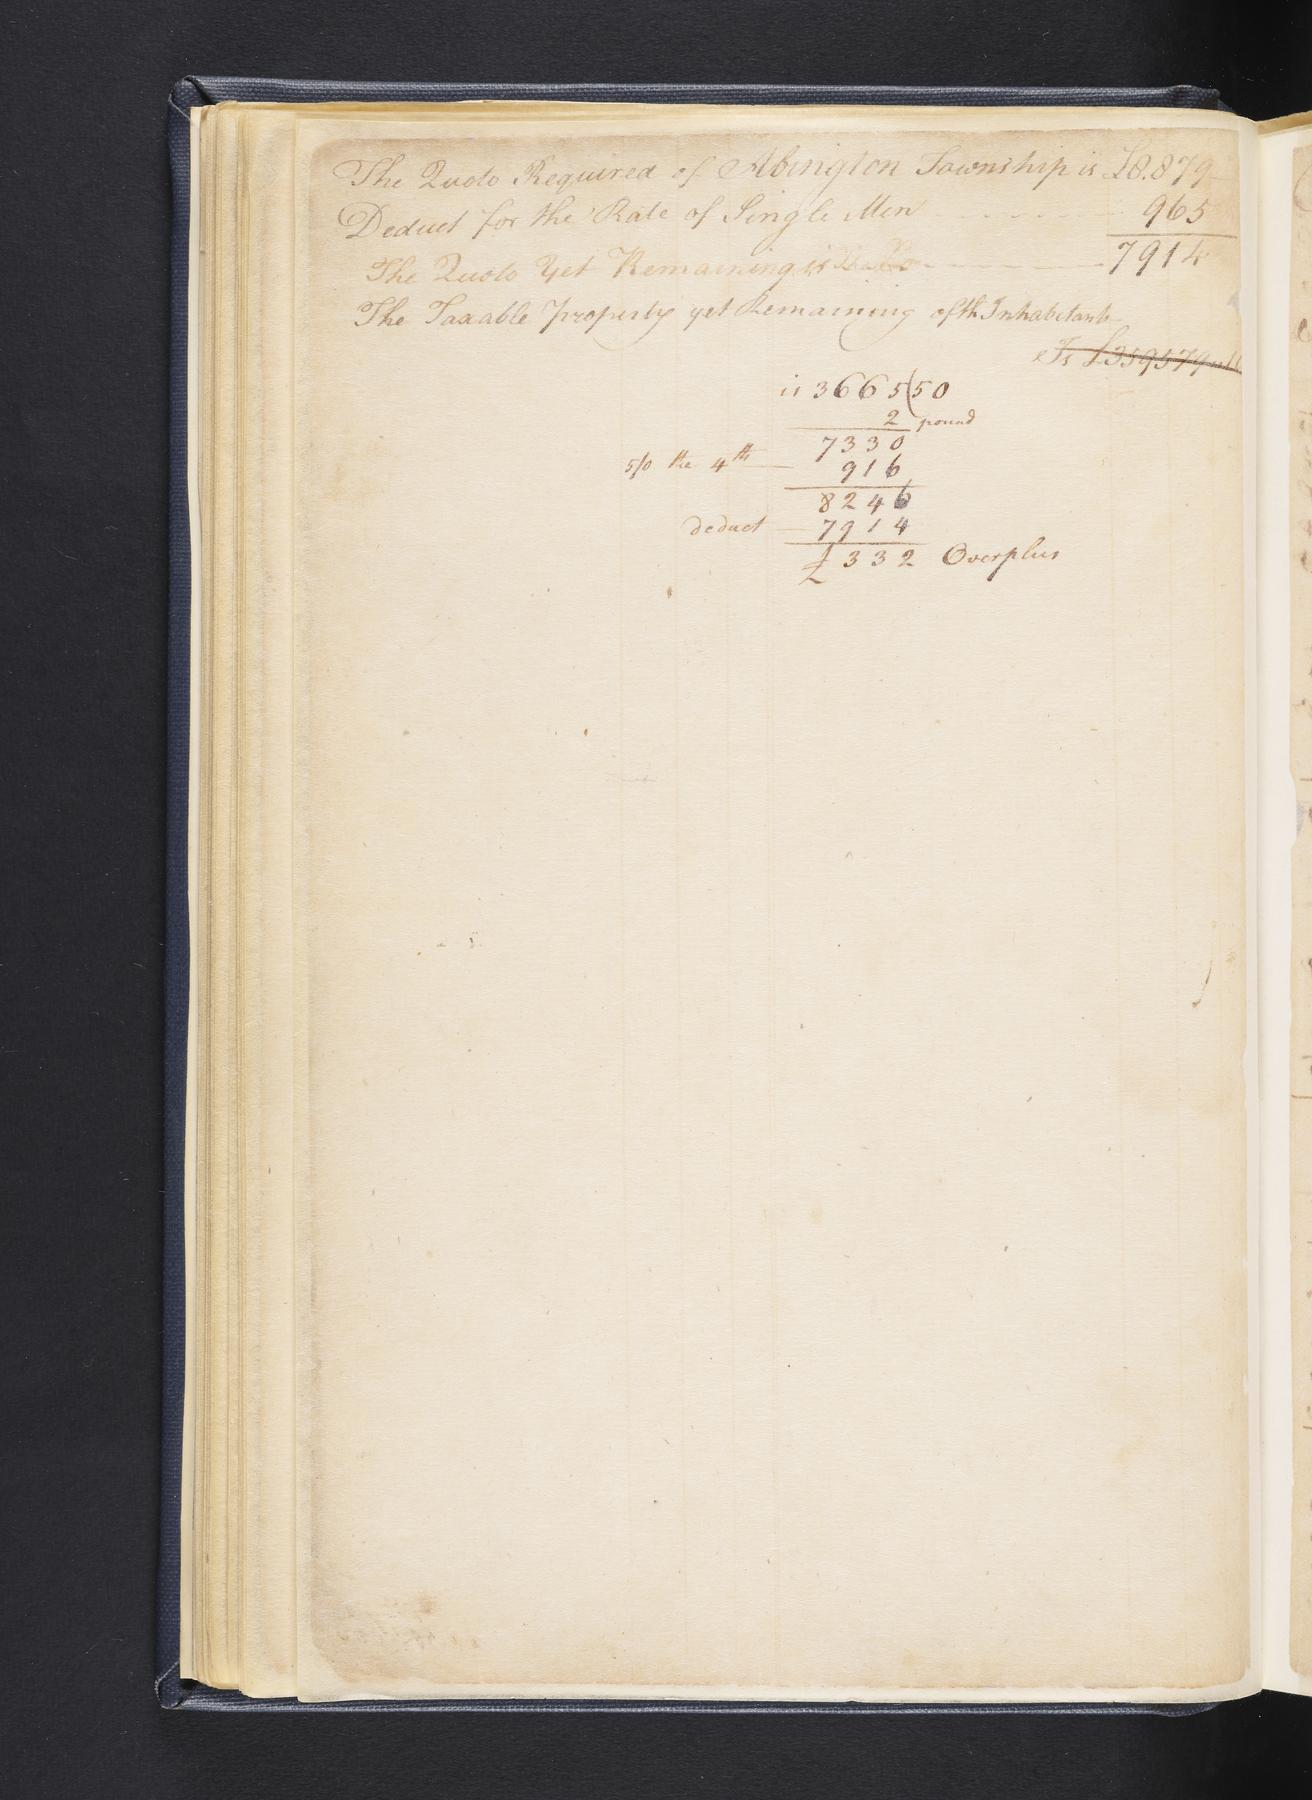 The Quoto Required of Abington Township is £8.879
Deduct for the Rate of Single Men 965
The Quoto Yet Remaining is 7914
The Taxable Property yet Remaining of th Inhabitants
Is £359579
is 3665(50
2 pound
7330
5/0 the 4th 916
8246
deduct 7914
£ 332 Overplus